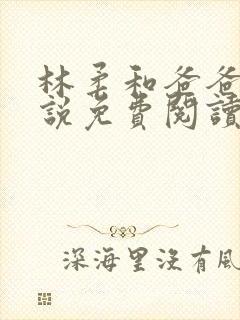 林柔和爸爸
說免費閱讀
深海里沒有風